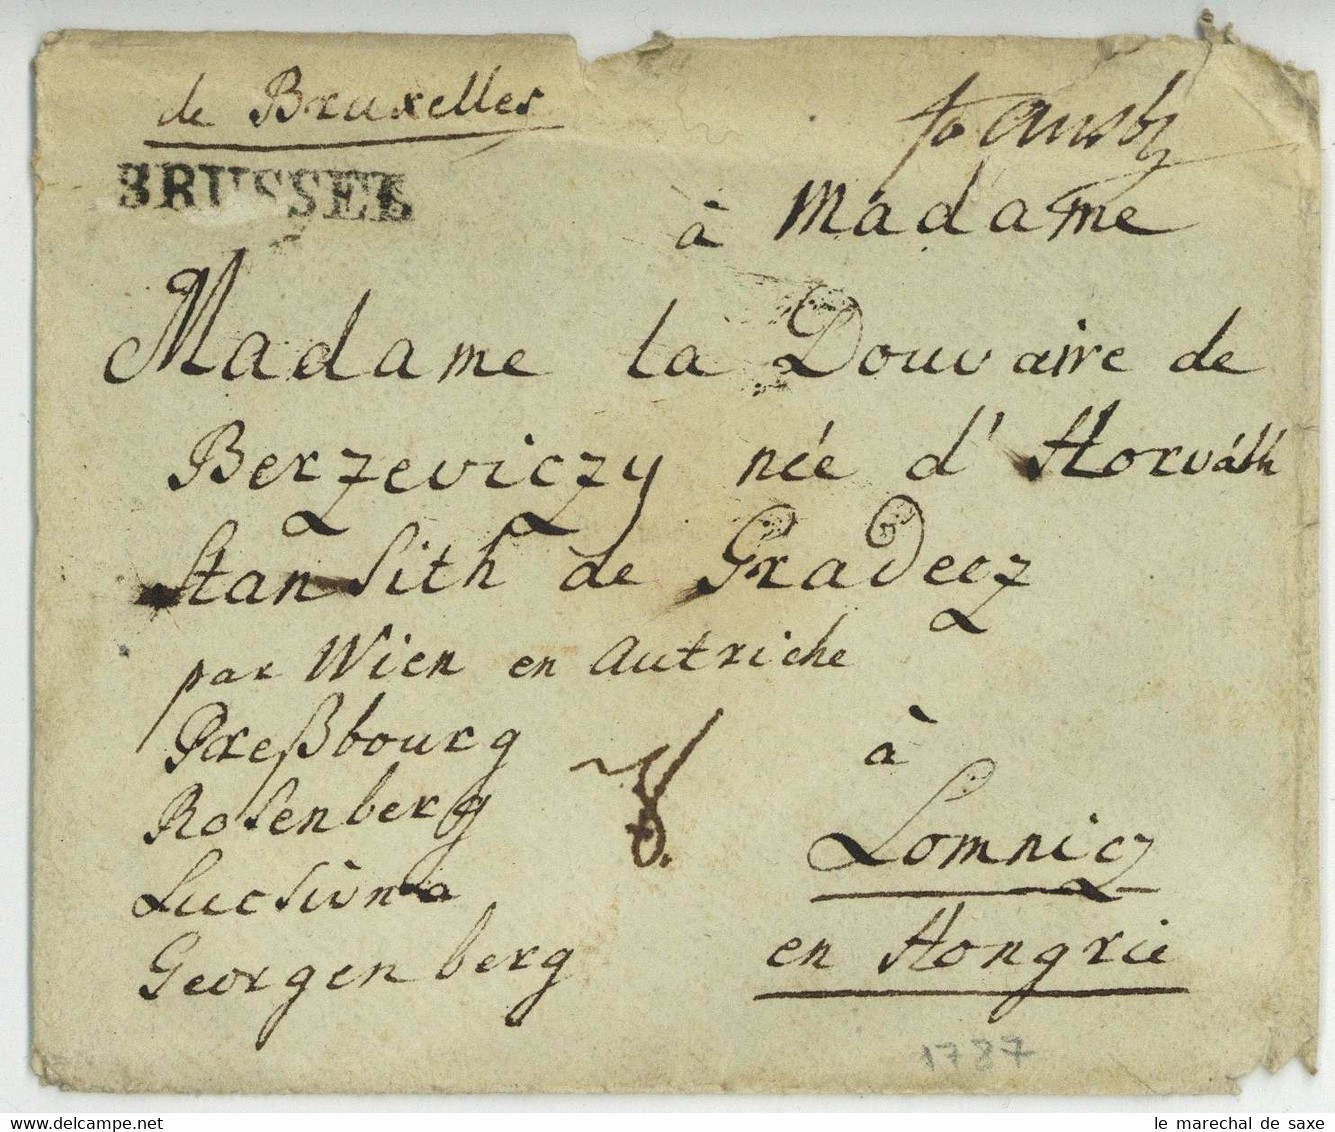 de Bruxelles
BRUSSEL
à Madame
Madame la Douvaire de
Berzeviczy née d'Horváth
Stansith de Gradecz
par Wien en Autriche
Preßbourg
Rosenberg
Lucsivna
Georgenberg
à
Lomnicz
en Hongrie
1787
le marechal de saxe